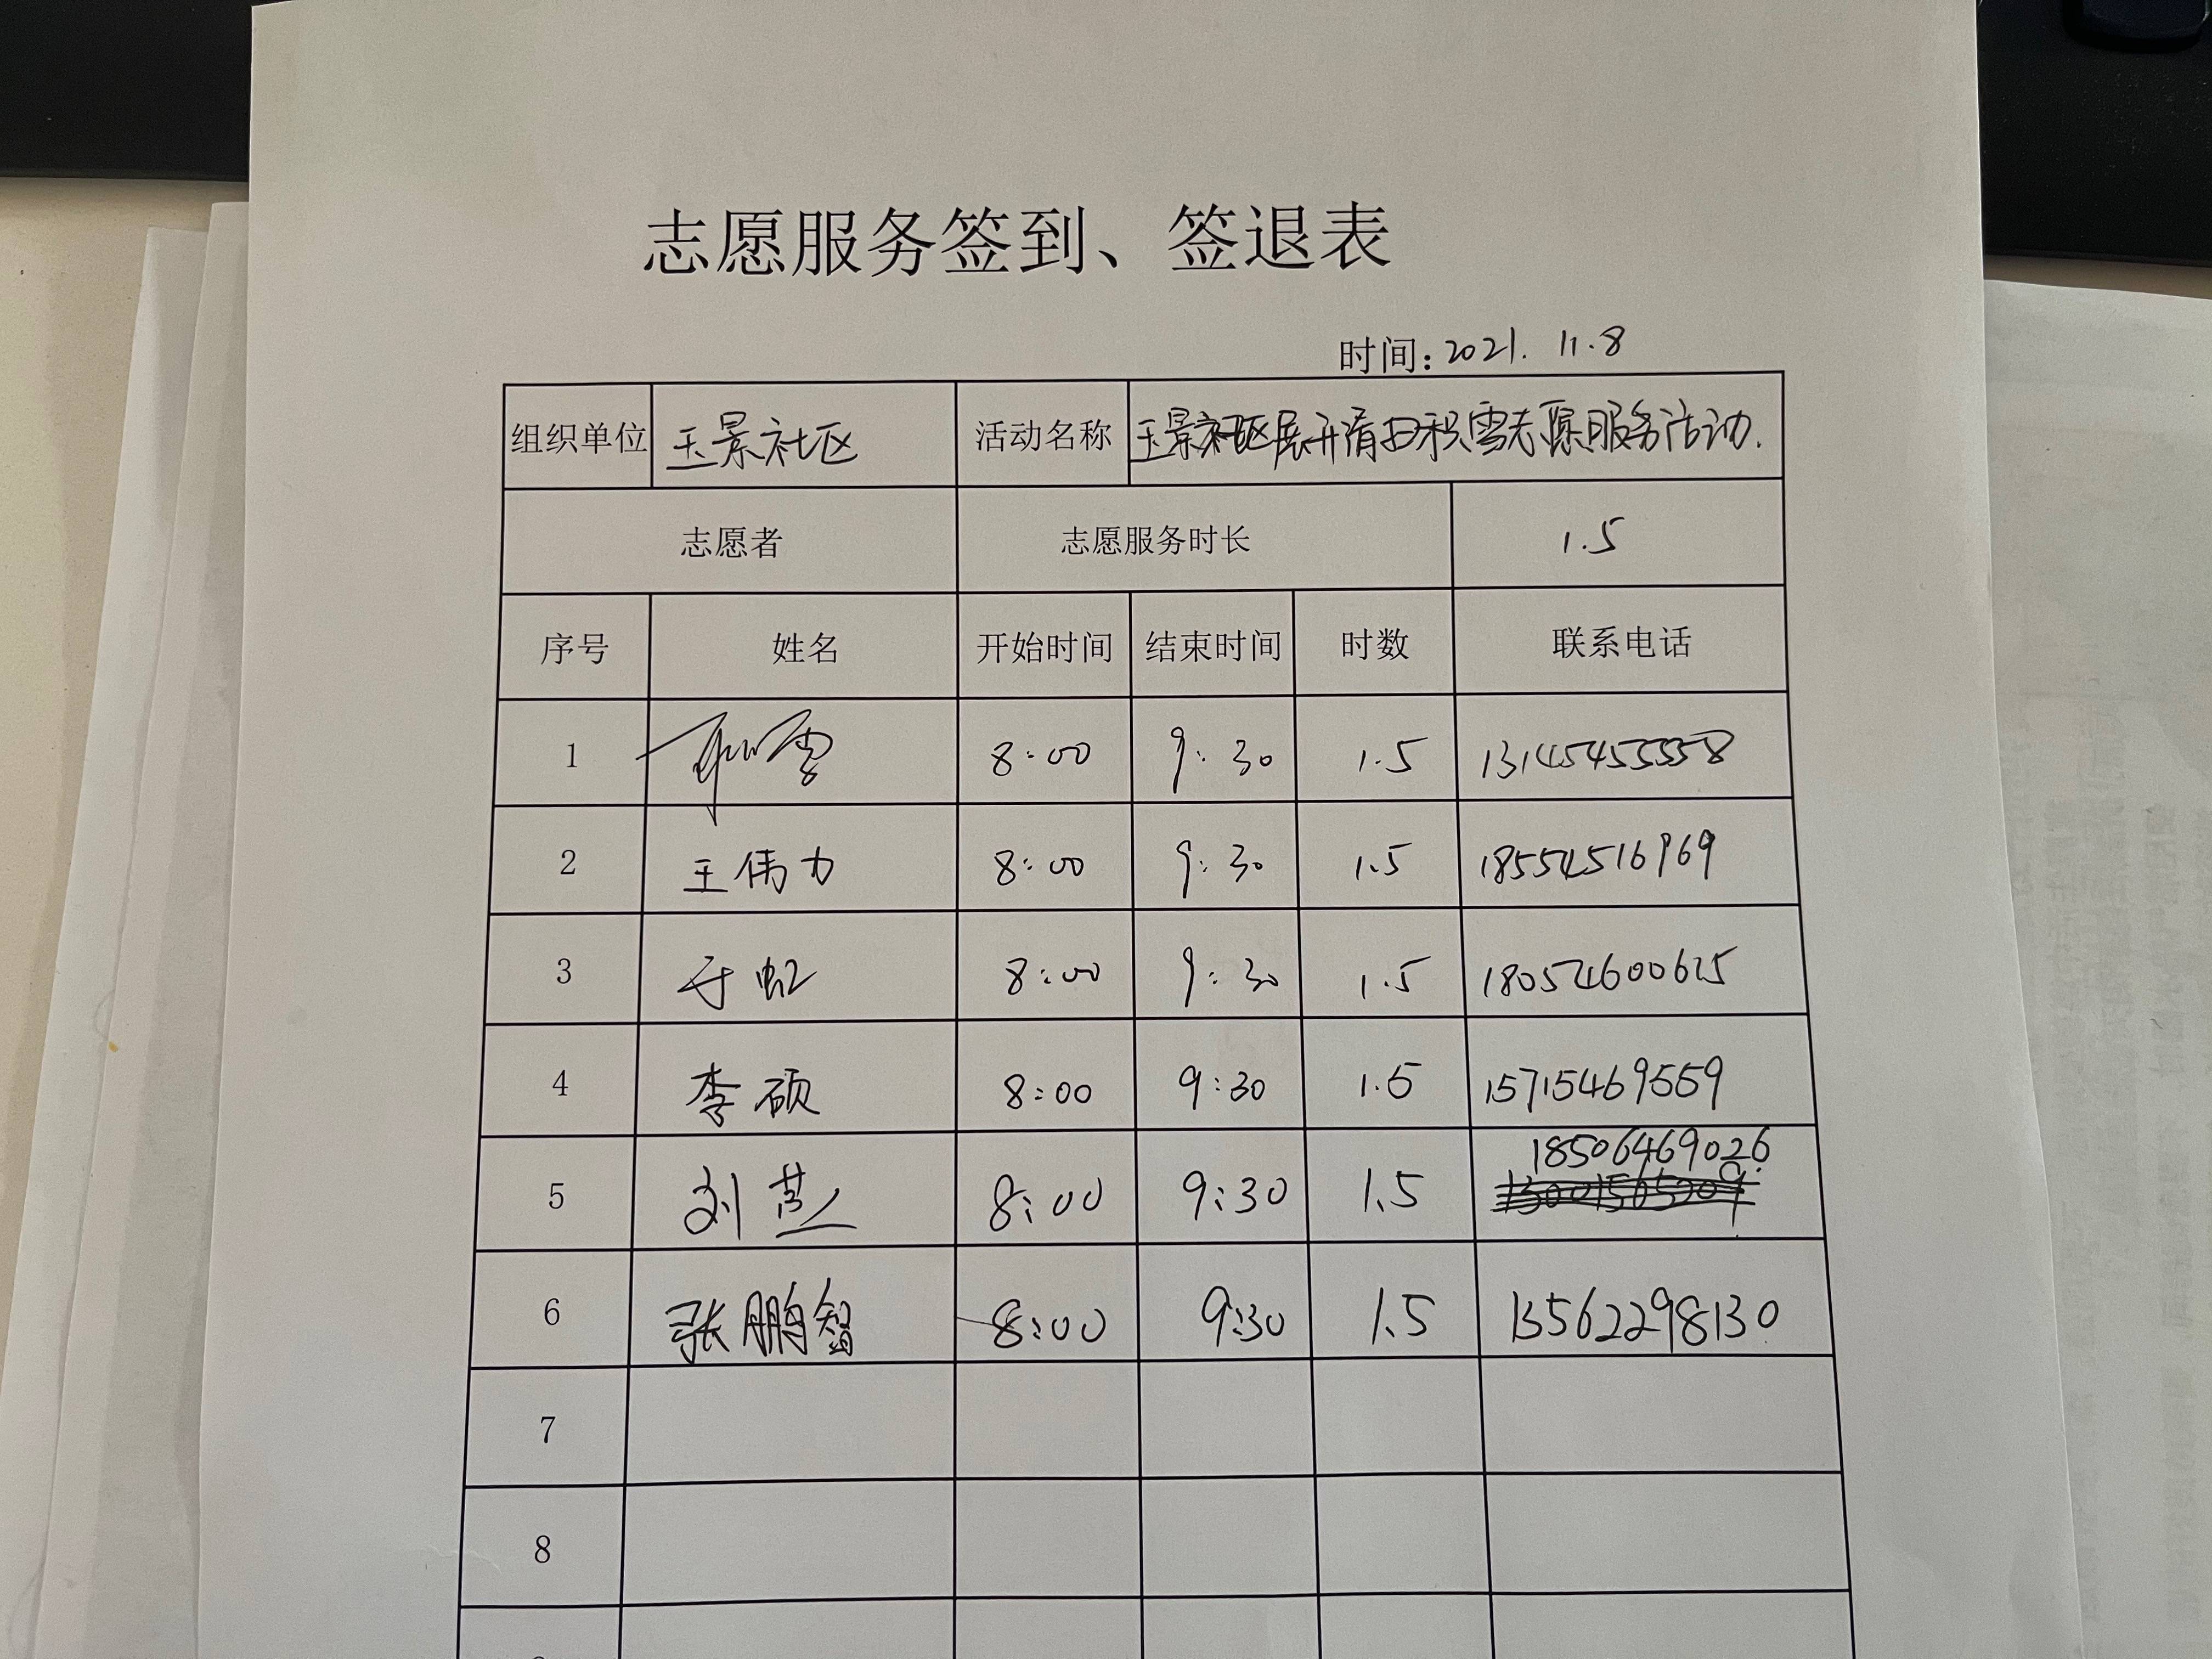 志愿服务签到、签退表
时间:2021. 11.8
组织单位 玉景社区 活动名称 玉景社区展开清扫积雪志愿服务活动.
志愿者 志愿服务时长 1.5
序号 姓名 开始时间 结束时间 时数 联系电话
1 雪 8:00 9:30 1.5
2 王伟力 8:00 9:30 1.5 18554516969
3 于虹 8:00 9:30 1.5 18054600615
4 李硕 8:00 9:30 1.5 15715469559
5 刘燕 8:00 9:30 1.5 18506469026
6 张鹏智 8:00 9:30 1.5 13562298130
7
8